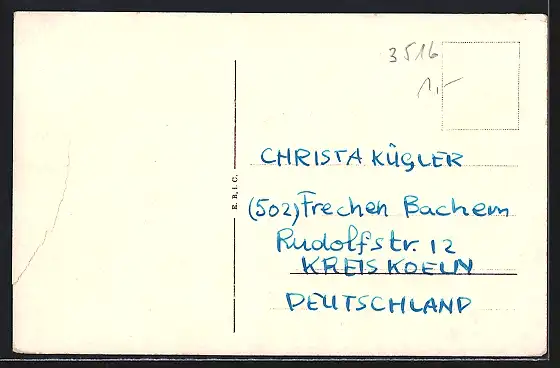 3516
1,-
E. B. I. C.
CHRISTA KÜGLER
(502) Frechen Bachem
Rudolfstr. 12
KREIS KOELN
DEUTSCHLAND